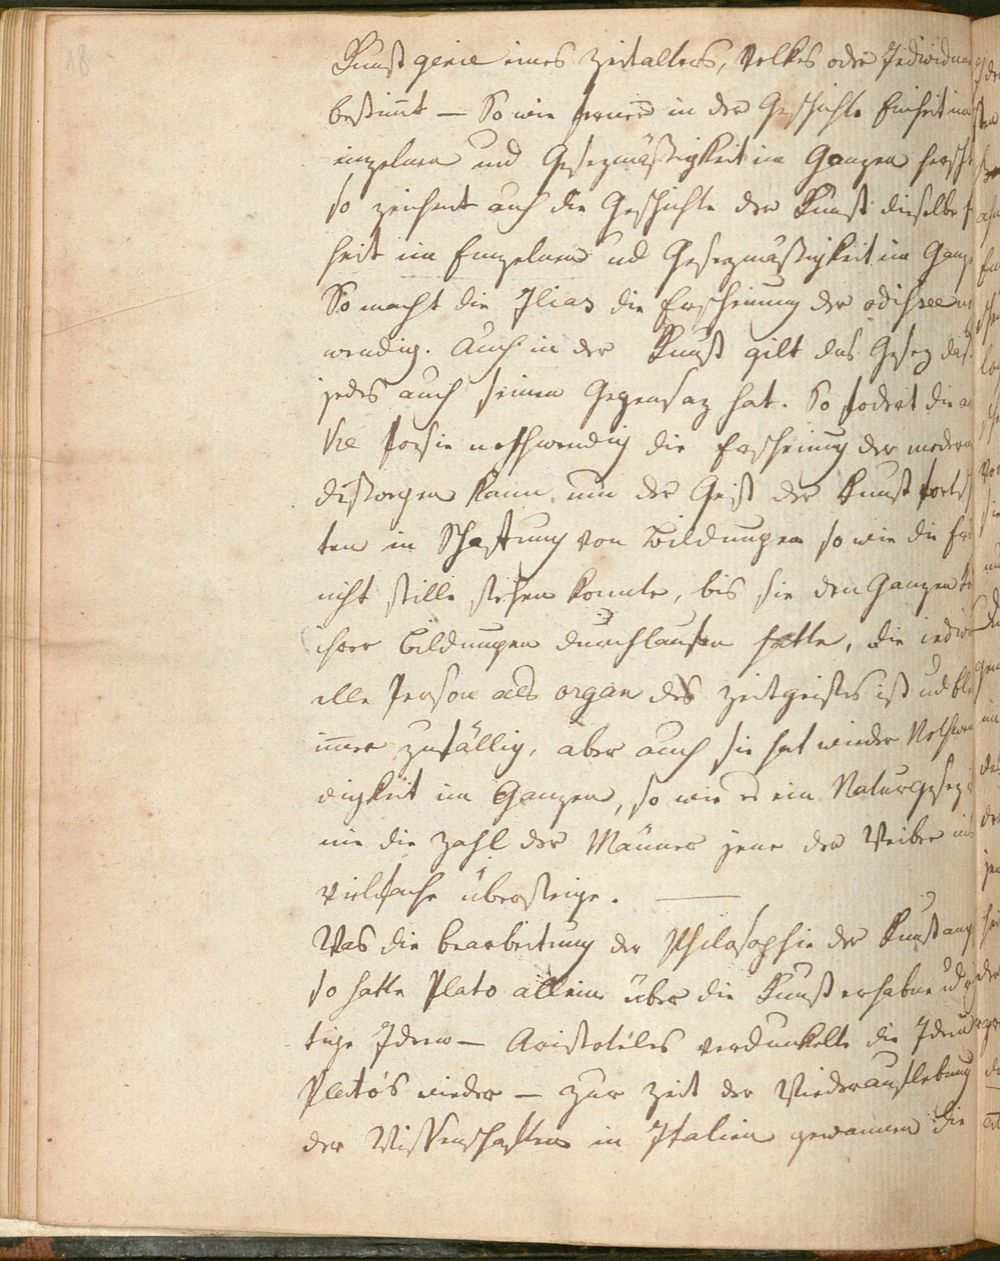 18
Kunstgenie eines Zeitalters, Volkes oder Individuu
bestim̅t — So wie ferner in der Geschichte Einheit im
einzelnen und Gesezmäßigkeit im Ganzen herscht
so zeichnet auch die Geschichte der Kunst dieselbe F
heit im Einzelnen ud Gesezmäßigkeit im Ganz
So macht die Ilias die Erscheinung der odißee no
wendig. Auch in der Kunst gilt das Gesez daß
jedes auch seinen Gegensaz hat. So fodert die a
ke Poesie nothwendig die Erscheinung der modern
kann, um der Geist der Kunst fort
ten in Schaffung von Bildungen so wie die
nicht stille stehen konnte, bis sie den Ganzen
ihrer Bildungen durchlaufen hatte, die individu
elle Person als organ des Zeitgeistes ist ud ble
im̅er zufällig, aber auch sie hat wieder Nothwen
digkeit im Ganzen, so wie es ein Naturgesez
nie die Zahl der Männer jene der Weiber um
vielfache übersteige. —
Was die bearbeitung der Philosophie der Kunst ang
so hatte Plato allein über die Kunst erhabne ud
tige Ideen — Aristotéles verdunkelte die Ideen
Plató's wieder — zur Zeit der Wiederauflebung
der Wissenschaften in Italien gewannen die